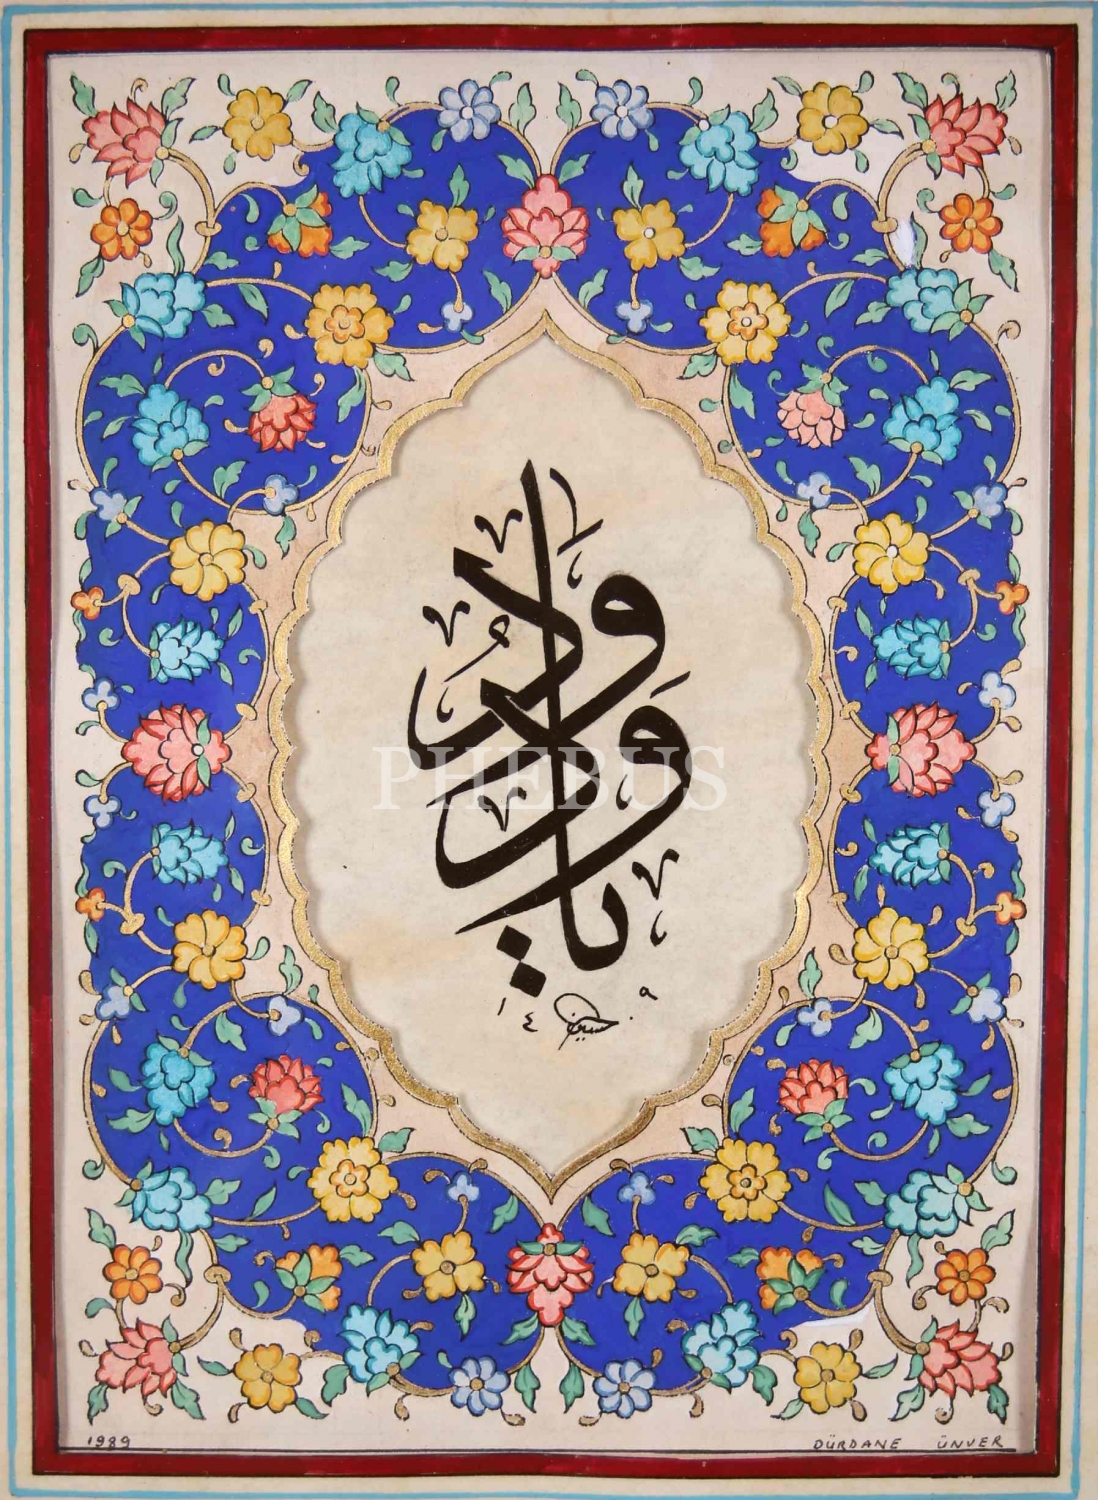 يا ودود
١٤ حسين ٠٩
PHEBUS
1989 DÜRDANE ÜNVER